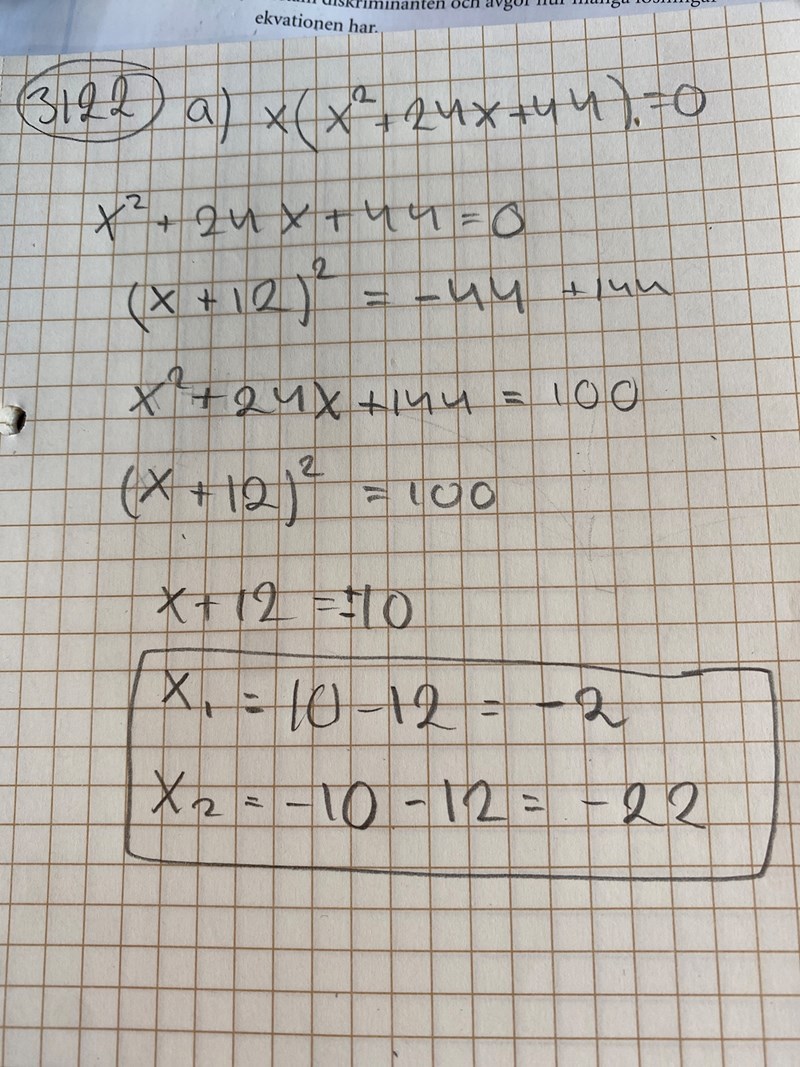 diskriminanten och avgör hur många lösningar
ekvationen har.
3122 a) x(x²+24x+44).=0
x²+24x+44=0
(x+12)²=-44 +144
x²+24x+144=100
(x+12)²=100
x+12=±10
x₁=10-12=-2
x₂=-10-12=-22